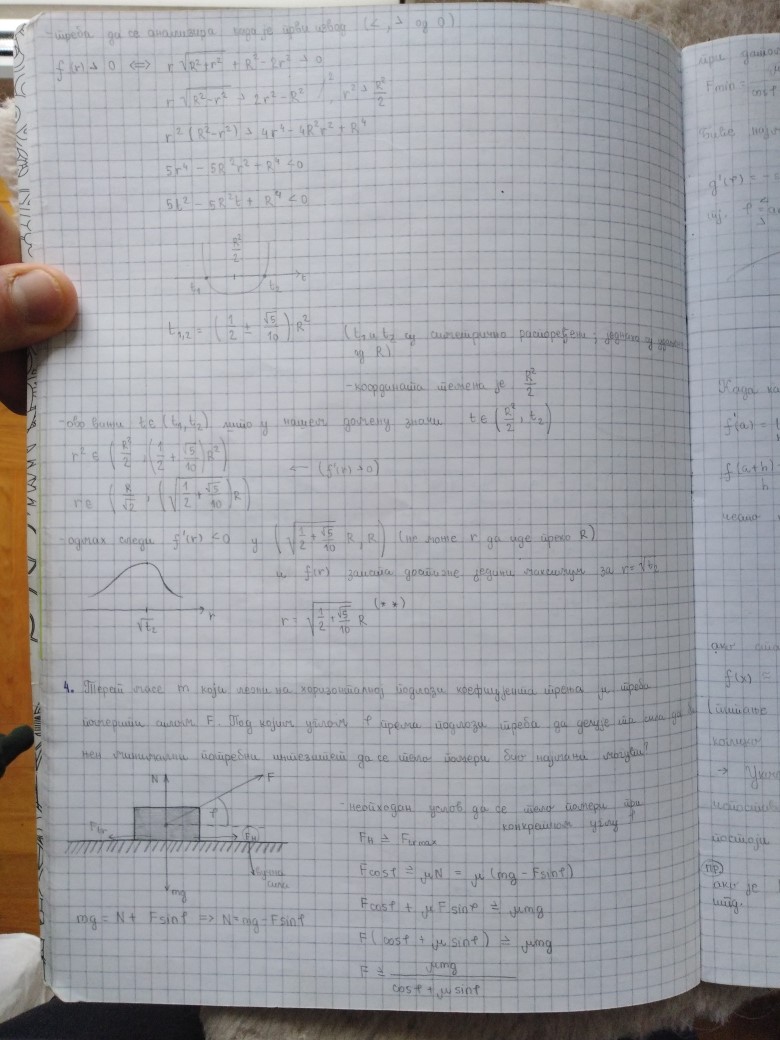 -треба да се анализира када је први извод (<, > од 0)
f'(r) > 0 <=> r √(R²-r²) + R² - 2r² > 0
r √(R²-r²) > 2r² - R² /² , r² > R²/2
r² (R²-r²) > 4r⁴ - 4R²r² + R⁴
5r⁴ - 5R²r² + R⁴ < 0
5t² - 5R²t + R⁴ < 0
R²/2
t₁ t₂ t
t₁,₂ = (1/2 ± √5/10) R²
(t₁ и t₂ су симетрично распоређени ; једнако су
од R)
-координата темена је R²/2
-ово важи t∈(t₁, t₂) што у нашем домену значи t∈(R²/2, t₂)
r² ∈ (R²/2, (1/2 + √5/10) R²)
← (f'(r) > 0)
r∈ (R/√2, (√(1/2 + √5/10)) R)
-одмах следи f'(r) < 0 у (√(1/2 + √5/10) R, R) (не може r да иде преко R)
и f(r) заиста достиже једини максимум за r=√t₂
√t₂ r
r = √(1/2 + √5/10) R (**)
4. Терет масе m који лежи на хоризонталној подлози коефицијента трења μ треба
померити силом F. Под којим углом φ према подлози треба да делује та сила да би
њен минимални потребни интензитет да се тело помери био најмањи могући?
N F
φ
Ftr FH
mg
сили
mg = N + Fsinφ => N = mg - Fsinφ
-неопходан услов да се тело помери при
конкретном углу φ
FH ≥ Ftr max
Fcosφ ≥ μN = μ (mg - Fsinφ)
Fcosφ + μFsinφ ≥ μmg
F(cosφ + μ sinφ) ≥ μmg
F ≥ μmg / (cosφ + μ sinφ)
при
Fmin =
cosφ
g'(φ) = -
Када
f'(a) =
f(a+h)
h
ако
f(x) =
колико
→
постоји
ПР
ако је
итд.